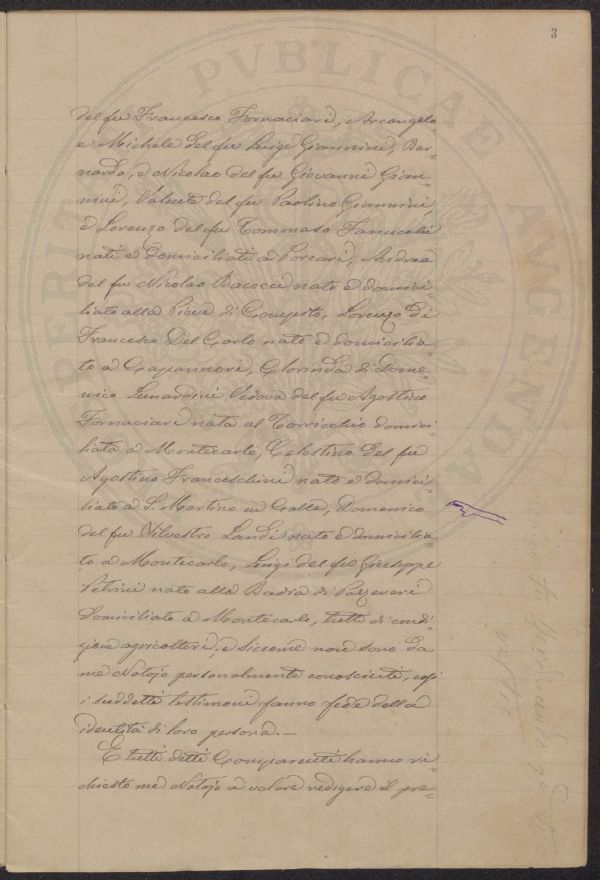 3
del fu Francesco Fornaciari, Arcangelo,
e Michele del fu Luigi Giannini, Ber-
nardo, e Nicolao del fu Giovanni Gian-
nini, Valente del fu Paolino Giannini,
e Lorenzo del fu Tommaso Fanucchi
nati e domiciliati a Porcari, Andrea
del fu Nicolao Bacocci nato e domici-
liato alla Pieve di Compito, Lorenzo di
Francesco Del Carlo nato e domicilia-
to a Capannori, Clorinda di Dome-
nico Lunardini Vedova del fu Agostino
Fornaciari nata al Torricchio domici-
liata a Montecarlo, Celestino del fu
Agostino Franceschini nato e domici-
liato a S. Martino in Colle, Domenico
del fu Silvestro Landi nato e domicilia-
to a Montecarlo, Luigi del fu Giuseppe
nato alla Badia di Pozzeveri
domiciliato a Montecarlo, tutti di condi-
zione agricoltori, e siccome non sono da
me Notajo personalmente conosciuti, così
i suddetti testimoni fanno fede della
identità di loro persona.—
E tutti detti Comparenti hanno ri-
chiesto me Notajo a volere redigere il pre-
PVBLICAE AVGENDAE